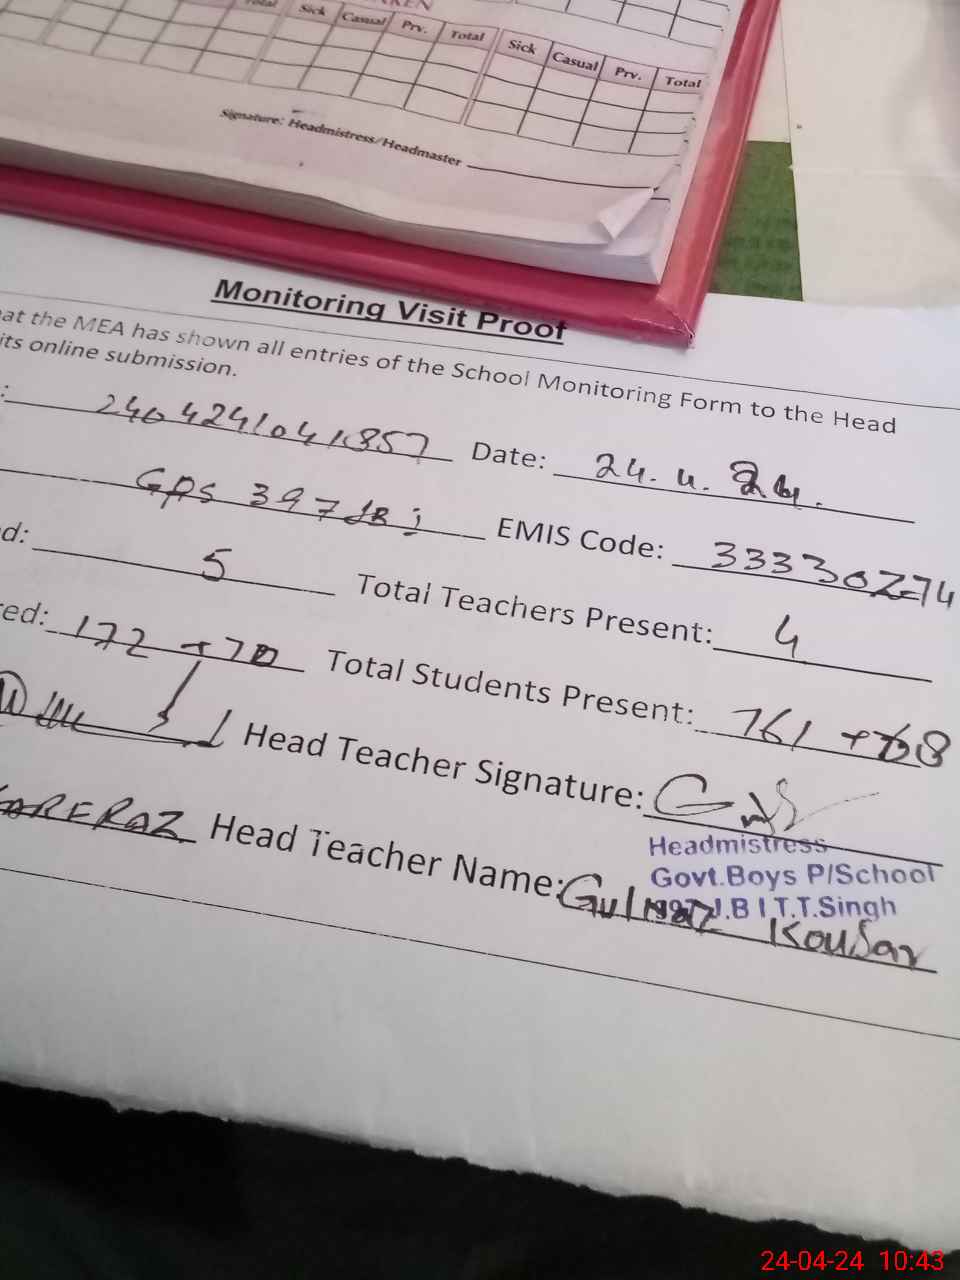 Total Sick Casual Prv. Total Sick Casual Prv. Total
Signature: Headmistress/Headmaster
Monitoring Visit Proof
at the MEA has shown all entries of the School Monitoring Form to the Head
its online submission.
: 2404241041857 Date: 24.4.24.
GPS 397 JB ; EMIS Code: 33330274
d: 5 Total Teachers Present: 4
ed: 172 + 70 Total Students Present: 161 + 68
Head Teacher Signature:
Headmistress
Govt.Boys P/School
397 J.B I T.T.Singh
Head Teacher Name: Gulnaz Kousar
24-04-24 10:43